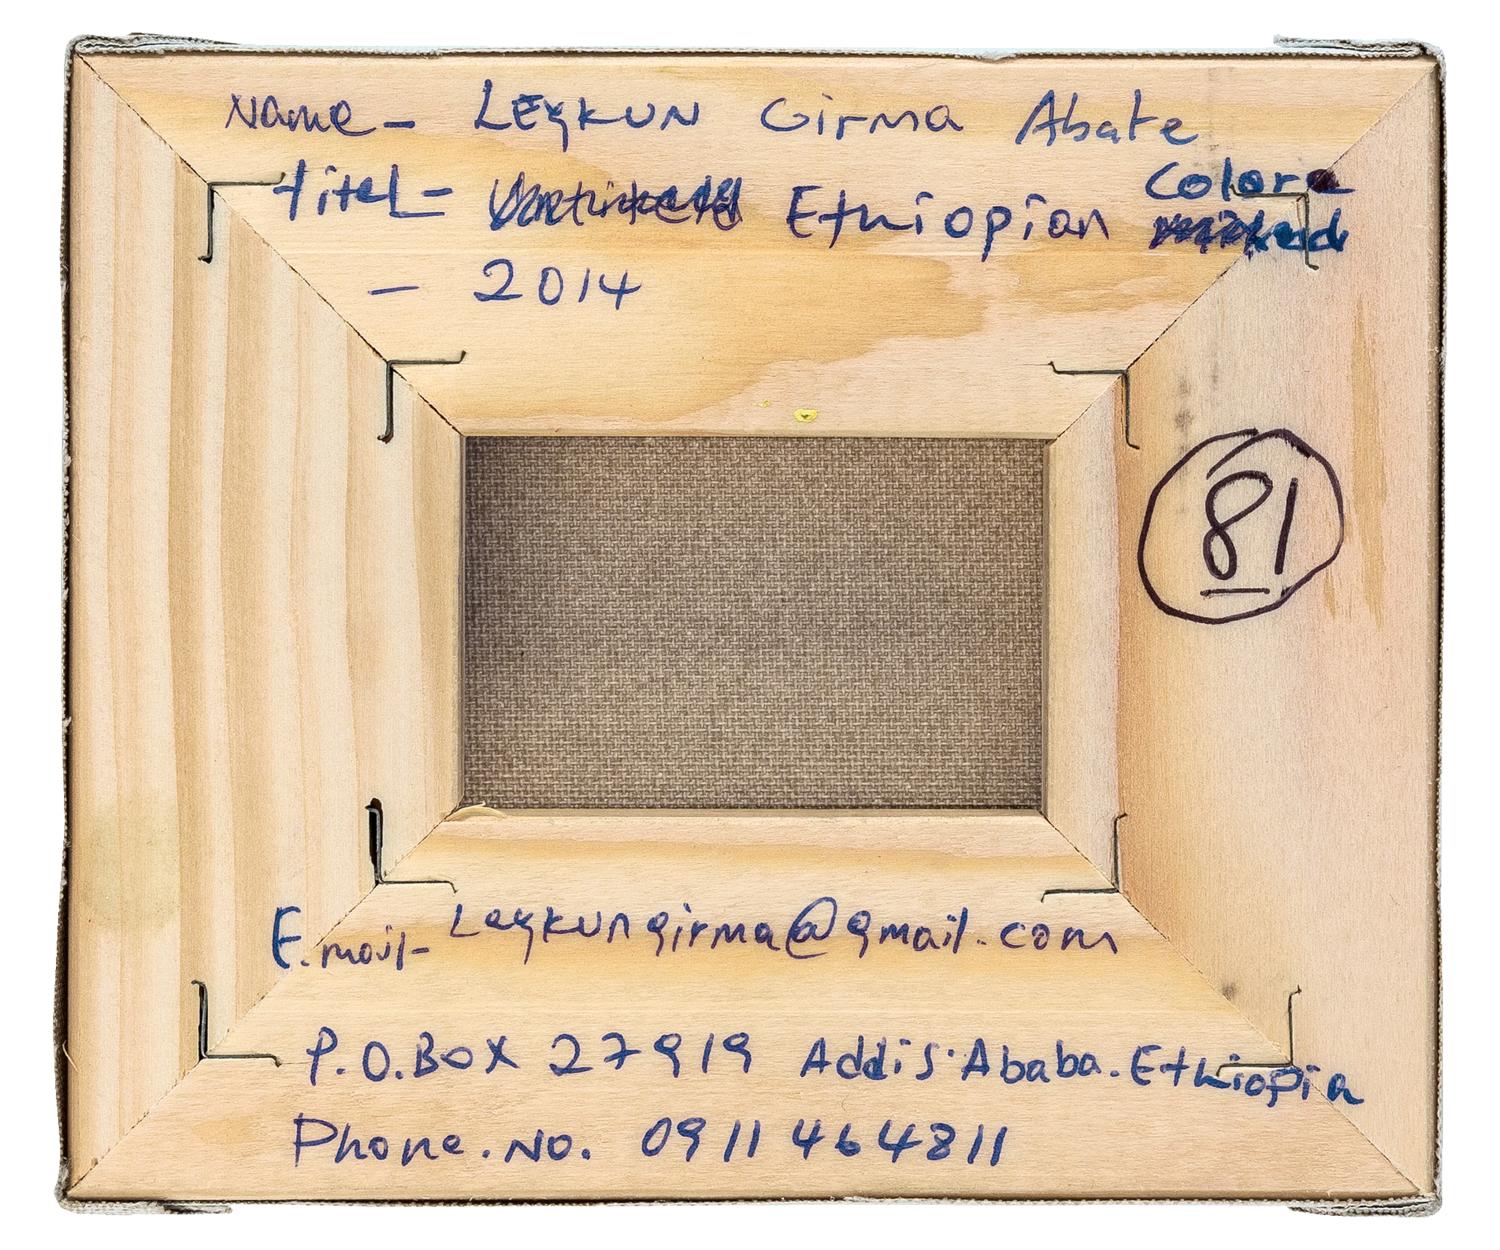 Name - LEYKUN Girma Abate
titel - Ethiopian Colora
- 2014
81
E.mail- Leykungirma@gmail.com
P.O.Box 27919 Addis Ababa. Ethiopia
Phone. No. 0911 464811